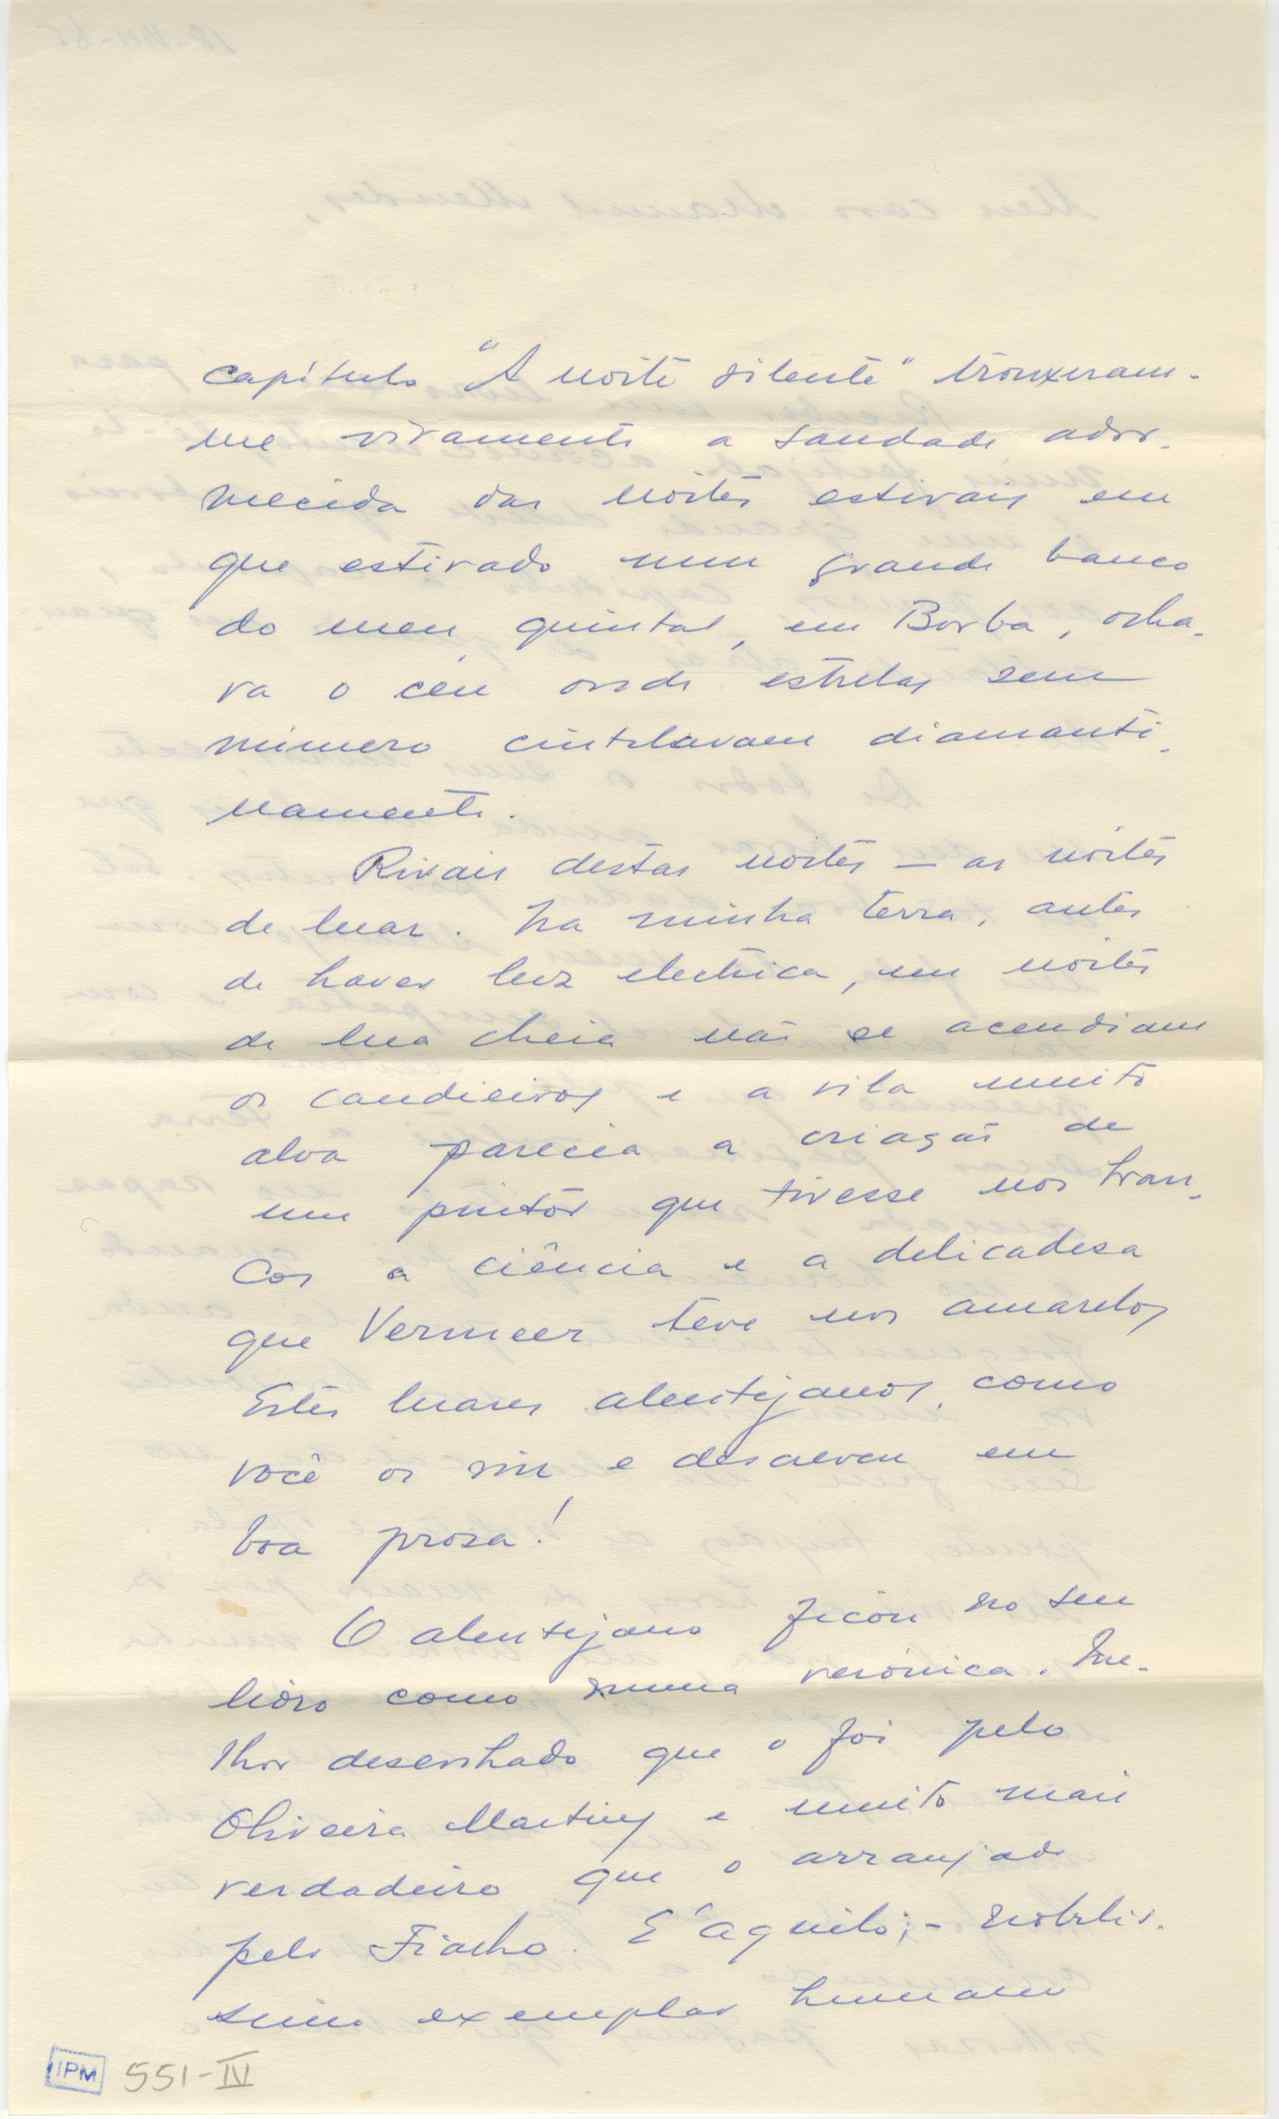 capítulo "A noite silente" trouxeram-
me vivamente a saudade ador-
mecida das noites estivais em
que estirado num grande banco
do meu quintal, em Borba, olha-
va o céu onde estrelas sem
número cintilavam diamanti-
namente.
Rivais destas noites — as noites
de luar. Na minha terra, antes
de haver luz electrica, em noites
de lua cheia não se acendiam
os candieiros e a vila muito
alva parecia a criação de
um pintor que tivesse nos bran-
cos a ciência e a delicadesa
que Vermeer teve nos amarelos
Estes luares alentejanos, como
você os viu e descreveu em
boa prosa!
O alentejano ficou no seu
livro como numa verónica. Me-
lhor desenhado que o foi pelo
Oliveira Martins e muito mais
verdadeiro que o arranjado
pelo Fialho. E' aquilo; - nobilis-
simo exemplar humano
IPM 551-IV